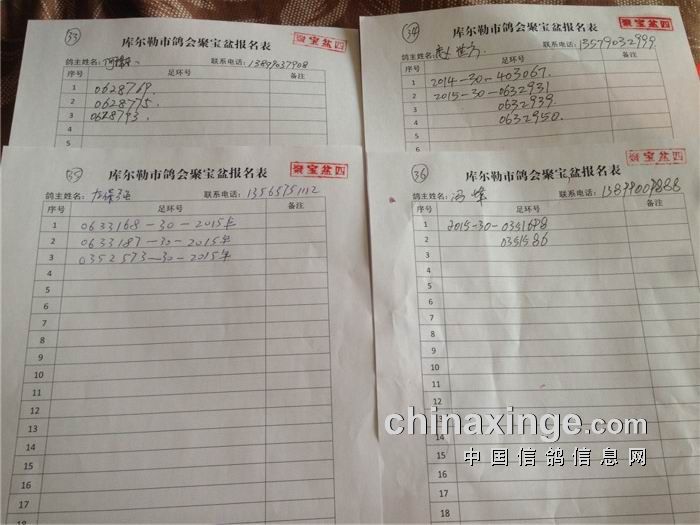 33
库尔勒市鸽会聚宝盆报名表
聚宝盆四
鸽主姓名:
联系电话: 13899037908
序号 足环号 备注
1 0628769.
2 0628775.
3 0628793.
4
5
34
库尔勒市鸽会聚宝盆报名表
聚宝盆四
鸽主姓名:
联系电话: 13579032999
序号 足环号 备注
1 2014-30-403067.
2 2015-30-0632931
3 0632939.
4 0632950.
5
35
库尔勒市鸽会聚宝盆报名表
聚宝盆四
鸽主姓名:
联系电话: 13565751112
序号 足环号 备注
1 0633168-30-2015年
2 0633187-30-2015年
3 0352573-30-2015年
4
5
6
7
8
9
10
11
12
13
14
15
16
17
18
36
库尔勒市鸽会聚宝盆报名表
聚宝盆四
鸽主姓名: 冯
联系电话:
序号 足环号 备注
1 2015-30-
2 0351586
3
4
5
6
7
8
9
10
11
12
13
14
15
16
17
18
chinaxinge.com
中国信鸽信息网